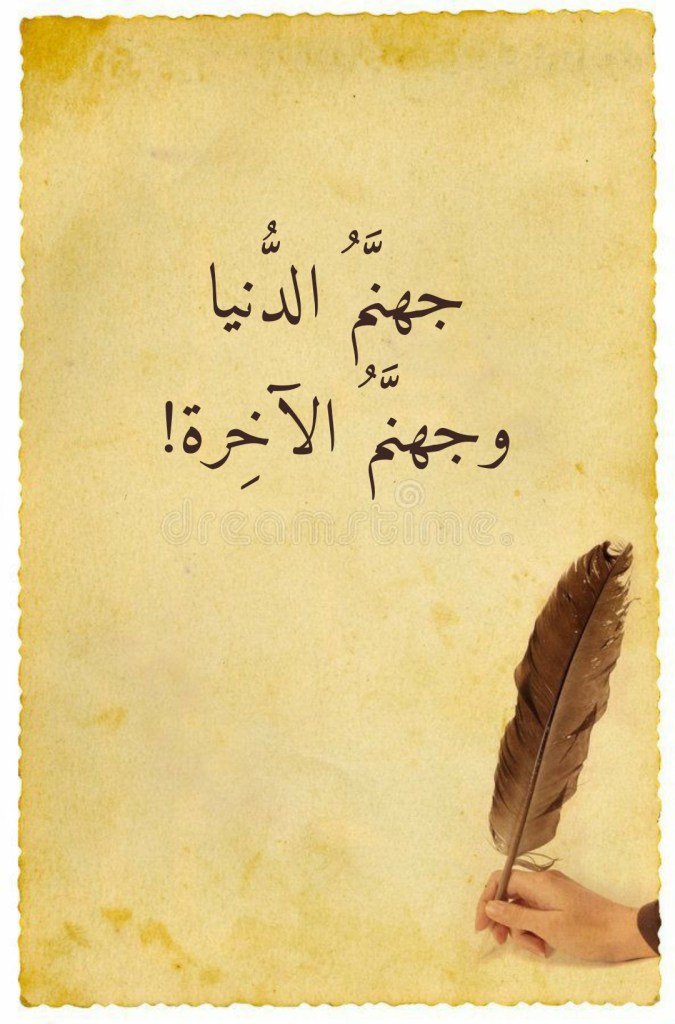 جهنَّمُ الدُّنيا
وجهنَّمُ الآخِرة!
dreamstime.